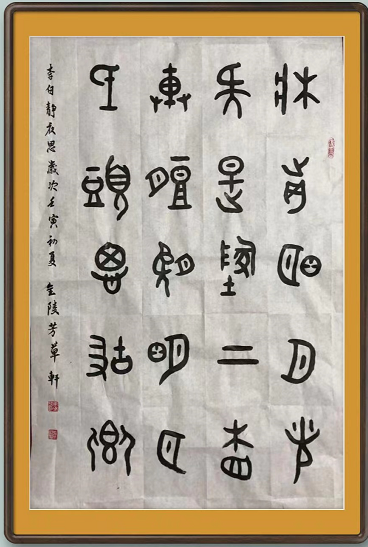 牀前明月光
疑是地上霜
舉頭望明月
氐頭思故鄉
李白靜夜思歲次壬寅初夏 金陵芳草軒